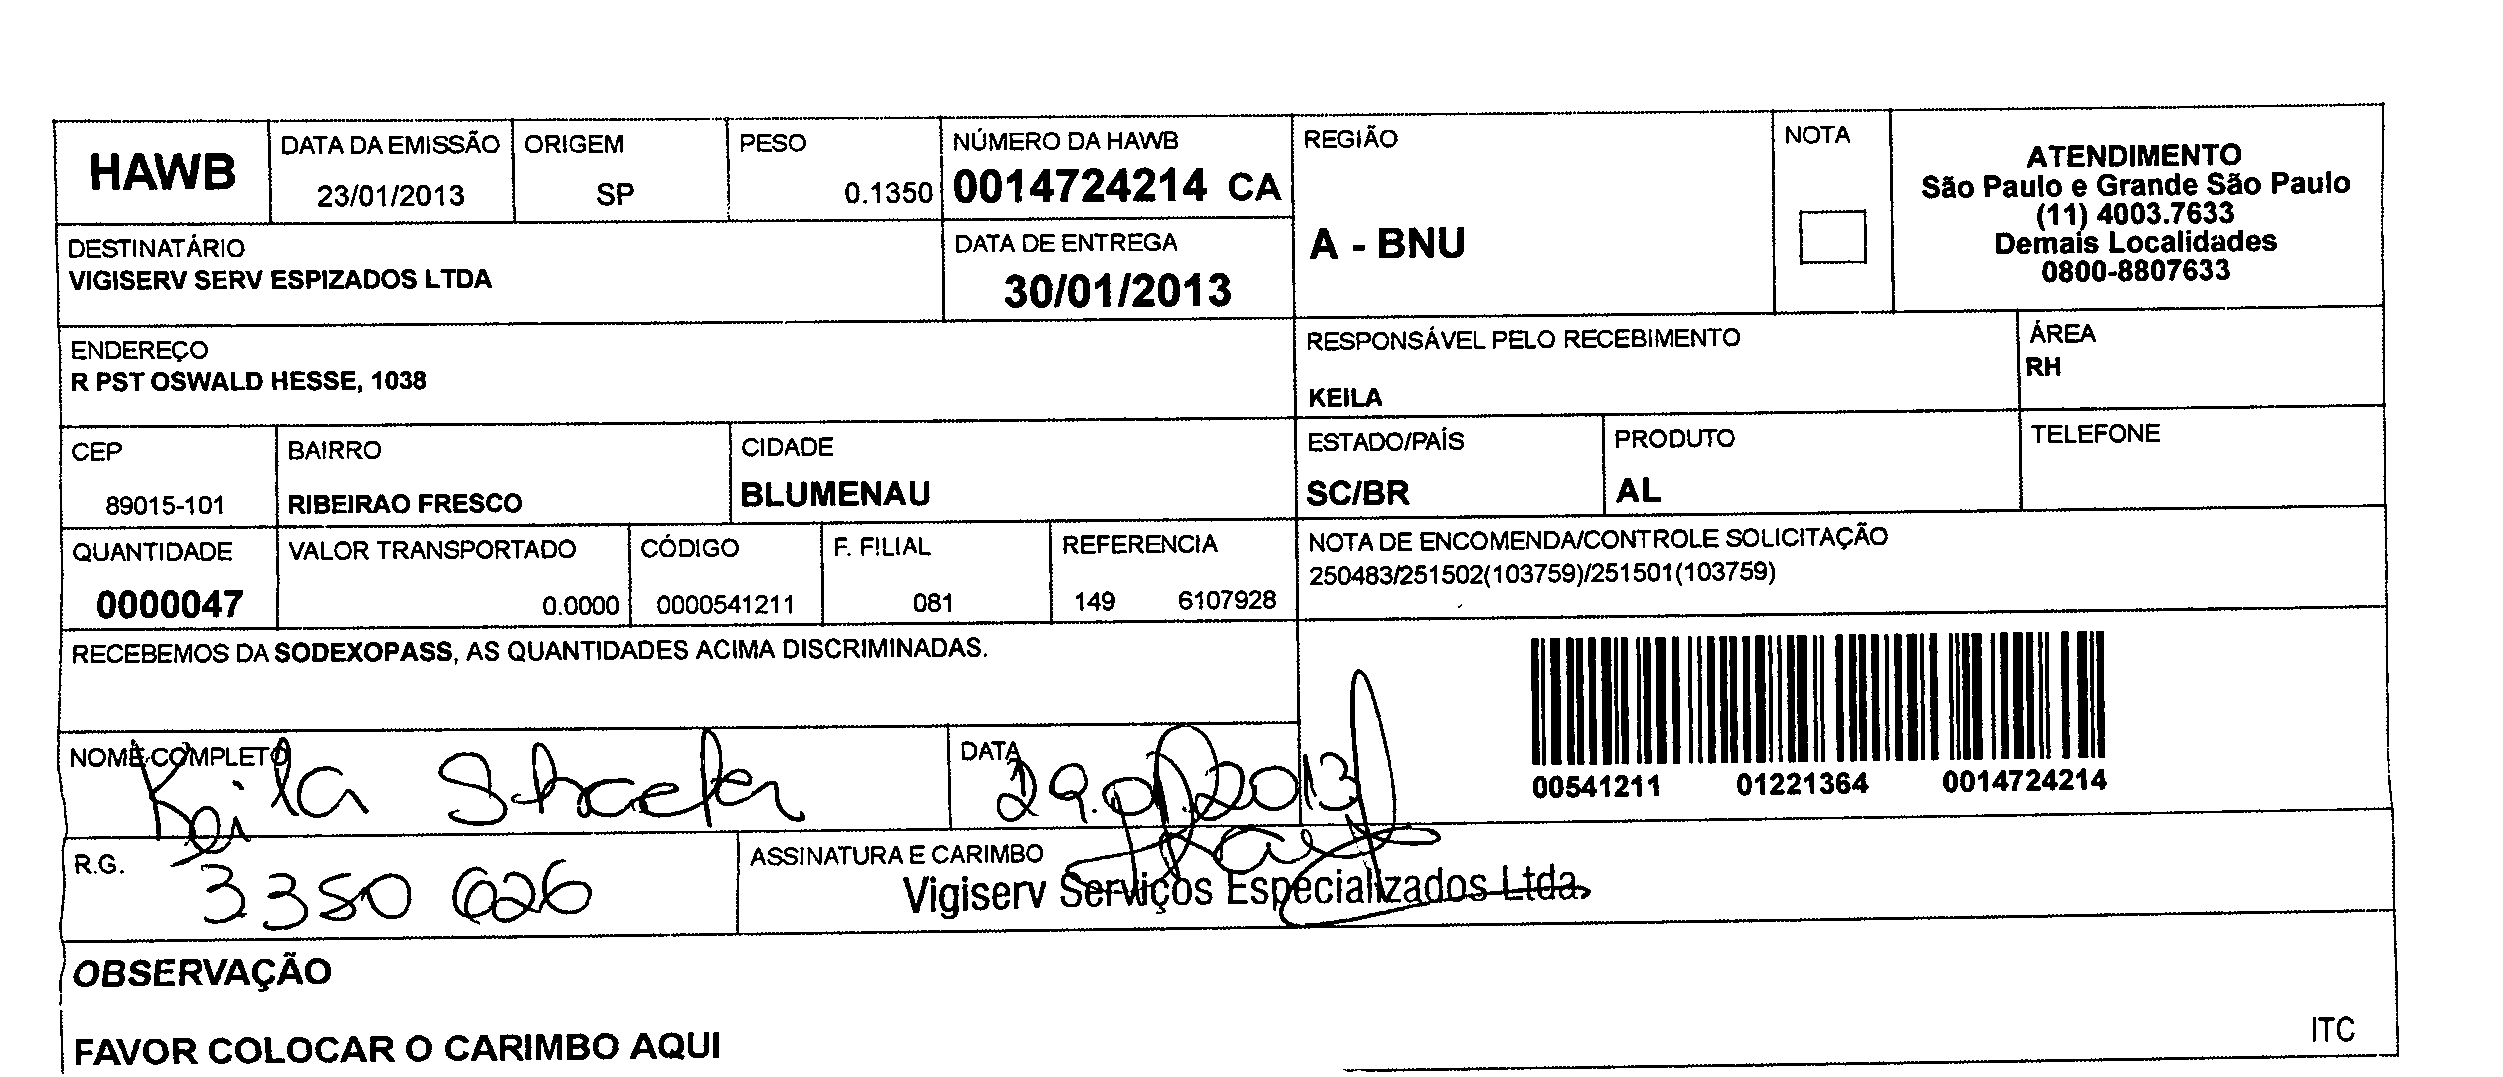 HAWB
DATA DA EMISSÃO
23/01/2013
ORIGEM
SP
PESO
0.1350
NÚMERO DA HAWB
0014724214 CA
REGIÃO
A - BNU
NOTA
ATENDIMENTO
São Paulo e Grande São Paulo
(11) 4003.7633
Demais Localidades
0800-8807633
DESTINATÁRIO
VIGISERV SERV ESPIZADOS LTDA
DATA DE ENTREGA
30/01/2013
ENDEREÇO
R PST OSWALD HESSE, 1038
RESPONSÁVEL PELO RECEBIMENTO
KEILA
ÁREA
RH
CEP
89015-101
BAIRRO
RIBEIRAO FRESCO
CIDADE
BLUMENAU
ESTADO/PAÍS
SC/BR
PRODUTO
AL
TELEFONE
QUANTIDADE
0000047
VALOR TRANSPORTADO
0.0000
CÓDIGO
0000541211
F. FILIAL
081
REFERENCIA
149 6107928
NOTA DE ENCOMENDA/CONTROLE SOLICITAÇÃO
250483/251502(103759)/251501(103759)
RECEBEMOS DA SODEXOPASS, AS QUANTIDADES ACIMA DISCRIMINADAS.
00541211 01221364 0014724214
NOME COMPLETO
Keila
DATA
29.01.2013
R.G.
3350 626
ASSINATURA E CARIMBO
Vigiserv Serviços Especializados Ltda.
OBSERVAÇÃO
FAVOR COLOCAR O CARIMBO AQUI
ITC